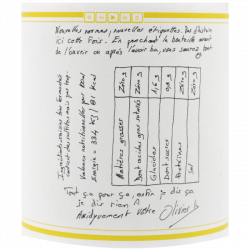 Nouvelles normes, nouvelles étiquettes. Pas d'histoire
ici cette fois. En penchant la bouteille avant
de l'avoir ou après l'avoir bu, vous saurez tout
Ingrédients: raisins bio fermentés
Contient des sulfites mais pas trop.
Valeurs nutritionnelles par 100ml
Énergie = 334 KJ / 81 Kcal
Matières grasses Zéro g
Dont acides gras saturés Zéro g
Glucides 1,6 g
Dont sucres
Protéines Zéro g
Sel Zéro g
Tout ça pour ça, enfin je dis ça
je dis rien
Amicalement vôtre Olivier b